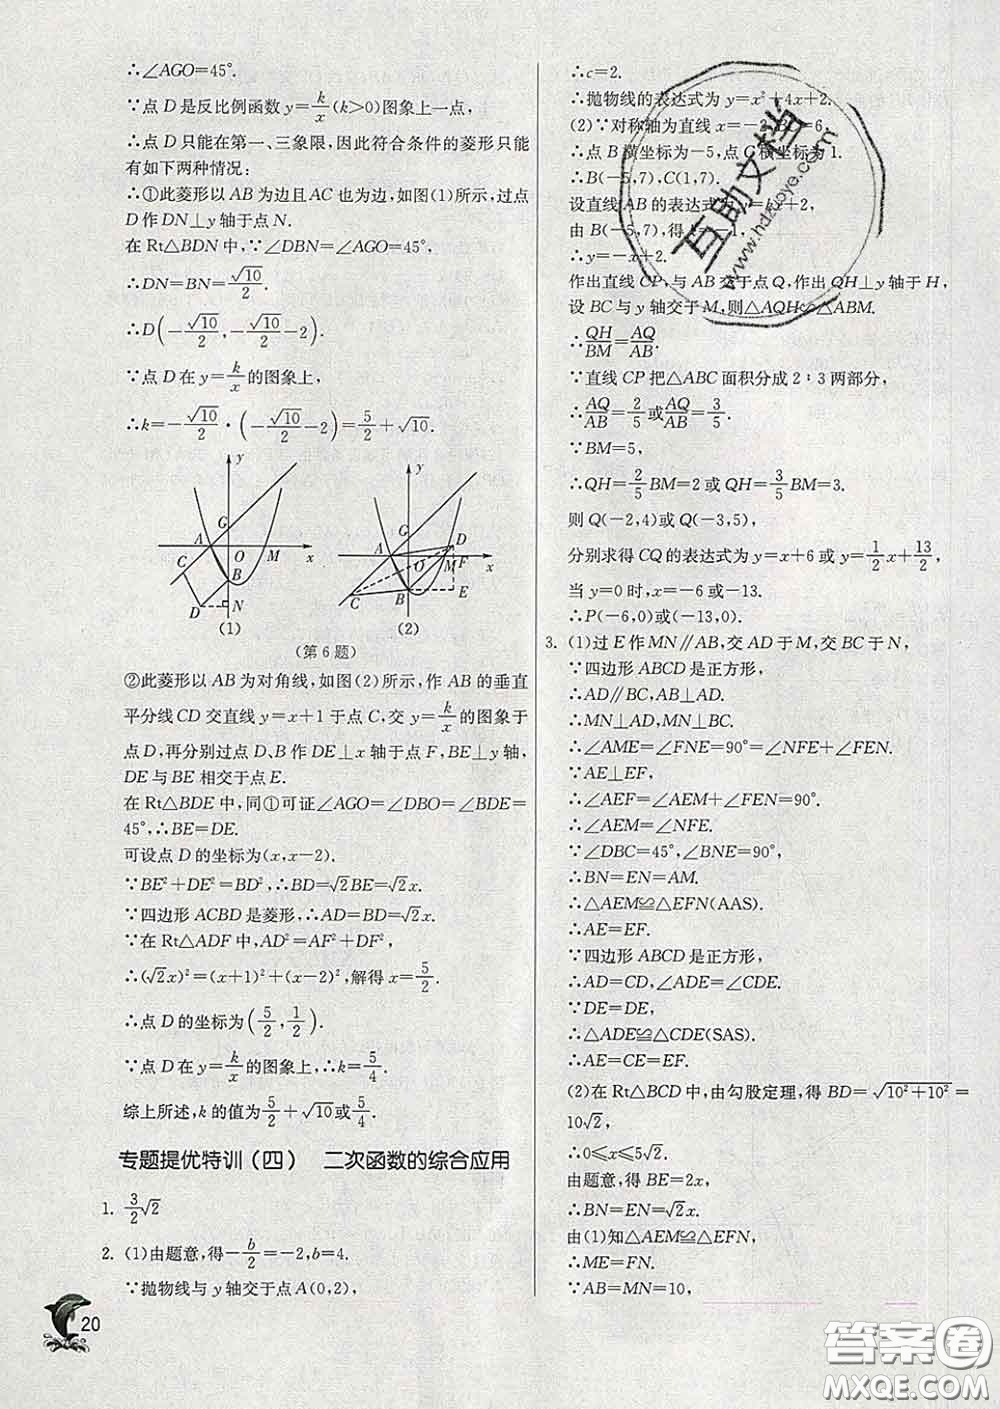 ∴∠AGO=45°.
∵点 D 是反比例函数 y=k/x (k>0)图象上一点,
∴点 D 只能在第一、三象限,因此符合条件的菱形只能
有如下两种情况:
∴①此菱形以 AB 为边且 AC 也为边,如图(1)所示,过点
D 作 DN⊥y 轴于点 N.
在 Rt△BDN 中,∵∠DBN=∠AGO=45°,
∴DN=BN=√10/2.
∴D(-√10/2,-√10/2-2).
∵点 D 在 y=k/x 的图象上,
∴k=-√10/2·(-√10/2-2)=5/2+√10.
y
G
A
C
O
M
x
B
D
N
(1)
y
G
A
D
O
M
F
x
C
B
E
(2)
(第 6 题)
②此菱形以 AB 为对角线,如图(2)所示,作 AB 的垂直
平分线 CD 交直线 y=x+1 于点 C,交 y=k/x 的图象于
点 D,再分别过点 D、B 作 DE⊥x 轴于点 F,BE⊥y 轴,
DE 与 BE 相交于点 E.
在 Rt△BDE 中,同①可证∠AGO=∠DBO=∠BDE=
45°,∴BE=DE.
可设点 D 的坐标为(x,x-2).
∵BE²+DE²=BD²,∴BD=√2BE=√2x.
∵四边形 ACBD 是菱形,∴AD=BD=√2x.
∵在 Rt△ADF 中,AD²=AF²+DF²,
∴(√2x)²=(x+1)²+(x-2)²,解得 x=5/2.
∴点 D 的坐标为(5/2,1/2).
∵点 D 在 y=k/x 的图象上,∴k=5/4.
综上所述,k 的值为5/2+√10或5/4.
专题提优特训(四) 二次函数的综合应用
1. 3/2√2
2. (1)由题意,得-b/2=-2,b=4.
∵抛物线与 y 轴交于点 A(0,2),
∴c=2.
∴抛物线的表达式为 y=x²+4x+2.
(2)∵对称轴为直线 x=-2,BC=6,
∴点 B 横坐标为-5,点 C 横坐标为 1.
∴B(-5,7),C(1,7).
设直线 AB 的表达式为 y=kx+2,
由 B(-5,7),得 k=-1.
∴y=-x+2.
作出直线 CP,与 AB 交于点 Q,作出 QH⊥y 轴于 H,
设 BC 与 y 轴交于 M,则△AQH∽△ABM.
∴QH/BM=AQ/AB.
∵直线 CP 把△ABC 面积分成 2∶3 两部分,
∴AQ/AB=2/5或AQ/AB=3/5.
∵BM=5,
∴QH=2/5BM=2 或 QH=3/5BM=3.
则 Q(-2,4)或(-3,5),
分别求得 CQ 的表达式为 y=x+6 或 y=1/2x+13/2.
当 y=0 时,x=-6 或-13.
∴P(-6,0)或(-13,0).
3. (1)过 E 作 MN∥AB,交 AD 于 M,交 BC 于 N,
∵四边形 ABCD 是正方形,
∴AD∥BC,AB⊥AD.
∴MN⊥AD,MN⊥BC.
∴∠AME=∠FNE=90°=∠NFE+∠FEN.
∵AE⊥EF,
∴∠AEF=∠AEM+∠FEN=90°.
∴∠AEM=∠NFE.
∵∠DBC=45°,∠BNE=90°,
∴BN=EN=AM.
∴△AEM≌△EFN(AAS).
∴AE=EF.
∵四边形 ABCD 是正方形,
∴AD=CD,∠ADE=∠CDE.
∵DE=DE,
∴△ADE≌△CDE(SAS).
∴AE=CE=EF.
(2)在 Rt△BCD 中,由勾股定理,得 BD=√10²+10²=
10√2,
∴0≤x≤5√2.
由题意,得 BE=2x,
∴BN=EN=√2x.
由(1)知△AEM≌△EFN,
∴ME=FN.
∵AB=MN=10,
20
互助文档
www.hdzuoye.com
答案圈
MXQE.COM